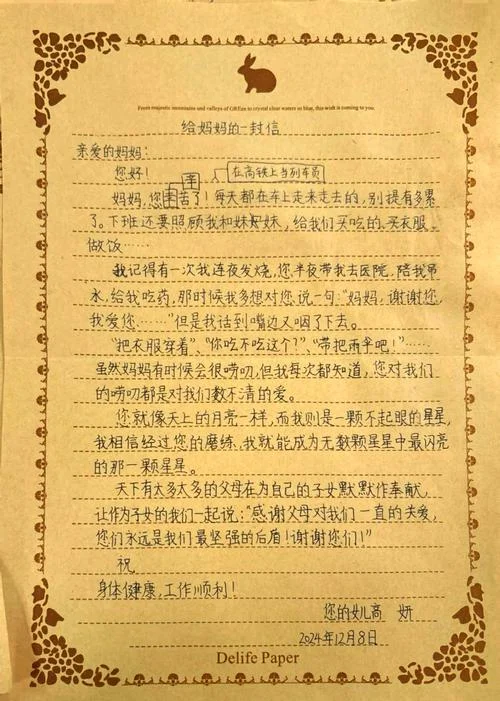 From majestic mountains and valleys of GREen to crystal clear waters so blue, this wish is coming to you.
给妈妈的一封信
亲爱的妈妈：
您好！
在高铁上当列车员
妈妈，您辛苦了！每天都在车上走来走去的，别提有多累
了。下班还要照顾我和妹妹，给我们买吃的、买衣服、
做饭……
我记得有一次我连夜发烧，您半夜带我去医院，陪我吊
水，给我吃药，那时候我多想对您说一句：“妈妈，谢谢您，
我爱您……”但是我话到嘴边又咽了下去。
“把衣服穿着”、“你吃不吃这个？”、“带把雨伞吧！”……
虽然妈妈有时候会很唠叨，但我每次都知道，您对我们
的唠叨都是对我们数不清的爱。
您就像天上的月亮一样，而我则是一颗不起眼的星星，
我相信经过您的磨练，我就能成为无数颗星星中最闪亮
的那一颗星星。
天下有太多太多的父母在为自己的子女默默作奉献，
让作为子女的我们一起说：“感谢父母对我们一直的关爱，
您们永远是我们最坚强的后盾！谢谢您们！”
祝
身体健康，工作顺利！
您的女儿高妍
2024年12月8日
Delife Paper